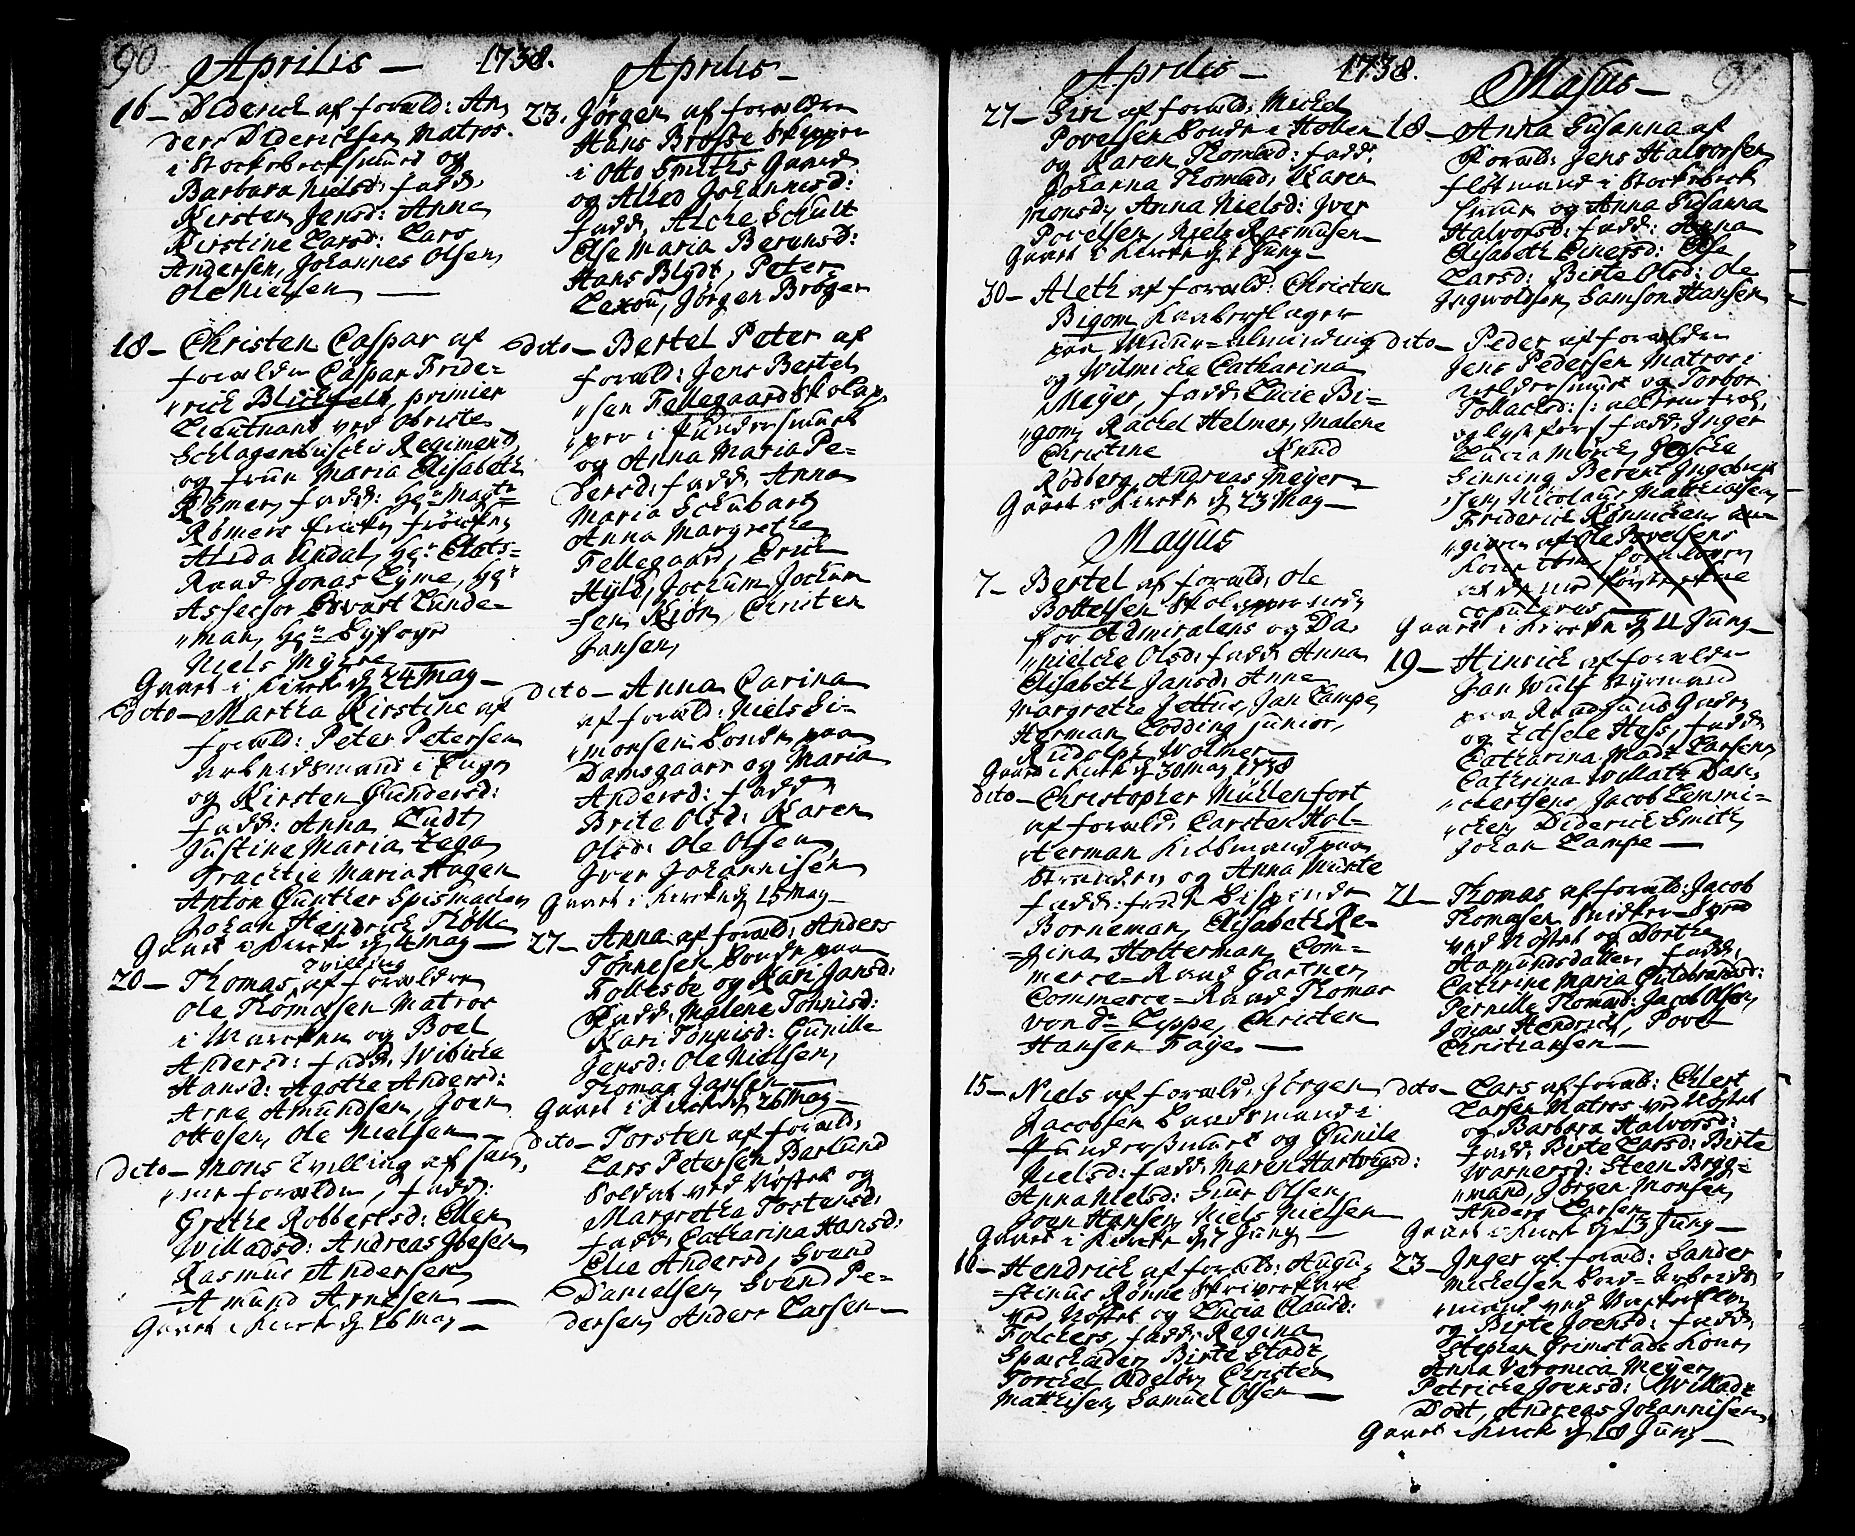 90
Aprilis — 1738.
16 — Diderich af foræld: An
ders Diderichsen Matros
i Stocksbechsmued og
Barbara Nielsd: fadd,
Kirsten Jansd: Anne
Kirstine Larsd: Lars
Andersen, Johannes Olsen,
Ole Nielsen —
18 — Christen Caspar af
forælden Caspar Fride-
"rich Blichfelt, primier
Lieutnant ved Obriste
Schlagenbusches Regiment
og frue Maria Elisabeth
Rømer, fadd: Hr Magr
Rømers
Alida Undal, Hr Clats-
Raad Jonas Lyme, Hr
Assessor Evart Lunde-
"man, Hr Byfogd
Niels Mÿhre
Gaaet i Kircke d 24 May —
dito — Martha Kirstine af
foræld: Peter Petersen
Arbeidsmand i Eugen
og Kirsten Gundersd:
fadd: Anna Ludt,
Justine Maria Zega
Trachtje Maria Hagen
Anton Günther Spismacher
Johan Hendrich Thölle
Gaaet i Kircke d 4 May —
20 — Thomas, tvilling af forældre
Ole Thomasen Matros
i Marcken og Boel
Andersd: fadd, Wibicke
Hansd: Agothe Andersd:
Arne Amundsen, Joen
Ottesen, Ole Nielsen —
dito — Mons Tvilling af sam,
"me forælden, fadd:
Grethe Robbertsd: Ellen
Willadsd: Andreas Ibesen
Rasmus Andersen
Amund Arnesen —
Gaaet i Kircke d 26 May —
Aprilis —
23. Jørgen af forældre
Hans Brøsse Skipper
i Otto Smiths Gaard
og Alhed Johannisd:
fadd, Alche Schult
Else Maria Berensd:
Hans Blydt, Peter
Lexou, Jørgen Brøger
dito — Bertel Peter af
foræld: Jens Bertel
"sen Fellegaard Skolap
"per i Pundersmuet
og Anna Maria Pe-
dersd: fadd, Anna
Maria Schubart
Anna Margrethe
Fellegaard, Erich
Hyld, Jochum Jochum
-sen Kiør, Christen
Jansen,
dito — Anna Carina
af foræld: Niels Si-
"monsen Bonde paa
Damsgaard og Maria
Andersd: fadd,
Brite Olsd: Karen
Olsd: Ole Olsen,
Iver Johannisen
Gaaet i Kircke d 15 May —
27 — Anna af foræld: Anders
Tønnesen Bonde paa
Follesøe og Kari Jansd:
Fadd, Malene Tønnisd:
Kari Tønnisd: Gunille
Jensd: Ole Nielsen,
Thomas Jansen —
Gaaet i Kircke d 26 May —
dito — Torsten af foræld:
Lars Petersen Barlund
Soldat ved Nøstet og
Margretha Torstensd:
fadd, Catharina Hansd:
Elie Andersd, Svend
Danielsen, Svend Pe-
dersen, Anders Larsen —
Aprilis — 1738.
27 — Siri af foræld: Michel
Povelsen Bonde i Holen
og Karen Thomæd: fadd,
Johanna Thomæd: Karen
Monsd, Anna Nielsd: Iver
Povelsen, Niels Rasmusen
Gaaet i Kircke d 1 Juny —
30 — Aleth af foræld: Christen
Bigom, Kaaberslager
paa Muur-Almindingen
og Wilmicke Catharina
Meÿer, fadd: Lucie Bi-
"gom, Rachel Helmers, Malene
Christine Knud
Rødberg, Andreas Meÿer —
Gaaet i Kircke d 23 May —
Mayus
7 — Bertel af foræld, Ole
Bottelsen Skolapper ned,
for Admiralens og Da,
"nielche Olsd: fadd, Anna
Elisabeth Jansd: Anne
Margrethe Jettus, Jan Lampe,
Herman Lødding junior,
Rudolph Wolmer —
Gaaet i Kircke d 30 May 1738
dito — Christopher Müllenfort
af foræld, Carsten Hol-
"terman, Kiøbmand paa
Stranden, og Anna Muste
fadd: frue Bispinde
Borneman, Elisabeth Re-
-gina Holterman, Com-
merce-Raad Gartner,
Commerce-Raad Thomas
von der Lippe, Christen
Hansen Faÿe —
15 — Niels af foræld, Jørgen
Jacobsen Landsmand i
Pundersmuet og Gunile
Nielsd: fadd, Maren Hartvigsd:
Anna Nielsd: Siur Olsen,
Joen Hansen, Niels Nielsen
Gaaet i Kircke d 7 Juny —
16 — Hendrich af foræld: Augu,
-stinus Rønne Skriverkarl
ved Nøstet og Lucia Clausd:
Folchers, fadd, Regina
Sparchæder, Birte Stadt,
Torchel Ødelør, Christen
Mathisen, Samuel Olsen —
Mayus —
18 — Anna Susanna af
Foræld: Jens Halvorsen
fløtmand i Stocksbech
smuen og Anna Susanna
Halvorsd: fadd: Anna
Elisabeth Einersd: Else
Larsd: Birte Olsd: Ole
Ingwoldsen, Samson Hansen
dito — Peder af forælden
Jens Pedersen Matros i
og Torbor
Tollachsd:
fadd, Inger
Lucia Mørch, Gesche
Sinning, Berent Ingebrigt
"sen, Nicolaus Matthiæsen
Friderich Rønnicken,
"given af Ole Povelsens
copuleres
Gaaet i Kircken d 11 Juny —
19 — Hinrich af forælden
Jan Wulf Styrmand
og Letsele Hess, fadd,
Catharina Mad: Larsen,
Cathrina Willatz Dan,
"ckertsens, Jacob Lemmi-
"chen, Diderich Smith,
Johan Lampe —
21 — Thomas af foræld: Jacob
Thomasen Snidker-Svend
ved Nøstet og Dorthe
Aamundsdatter, fadd,
Cathrine Maria Hildebrandsd:
Pernille Thomæd: Jacob Olsen,
Jonas Hendrich, Povel
Christiansen —
dito — Lars af foræld: Ehlert
Larsen Matros ved Nøstet
og Barbara Halvorsd:
fadd, Birte Larsd: Birte
Warnersd: Steen Brÿg-
"mand, Jørgen Monsen,
Anders Larsen —
Gaaet i Kircke d 13 Juny —
23 — Inger af foræld: Sander
Michelsen Bord-Arbeids,
"mand ved
og Birte Joensd: fadd,
Stephen Grimstads Kone,
Anna Veronica Meÿer,
Petricke Joensd: Willad
Dodt, Andreas Johannisen,
Gaaet i Kircke d 18 Juny —